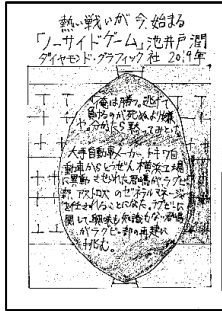 熱い戦いが今始まる
「ノーサイドゲーム」池井戸潤
ダイヤモンド・グラフィック社 2019年
「俺は勝つ。逃げて
負けるのが死ぬより嫌
や。分かったら黙ってみとい
大手自動車メーカー トキワ自
動車からとつぜん、横浜工場
に異動させられた君嶋が、ラグビー
部、アストロズのゼネラルマネージャー
を任されることになった。ラグビーに
関して、興味も知識もない君嶋
がラグビー部の再建に
挑む。